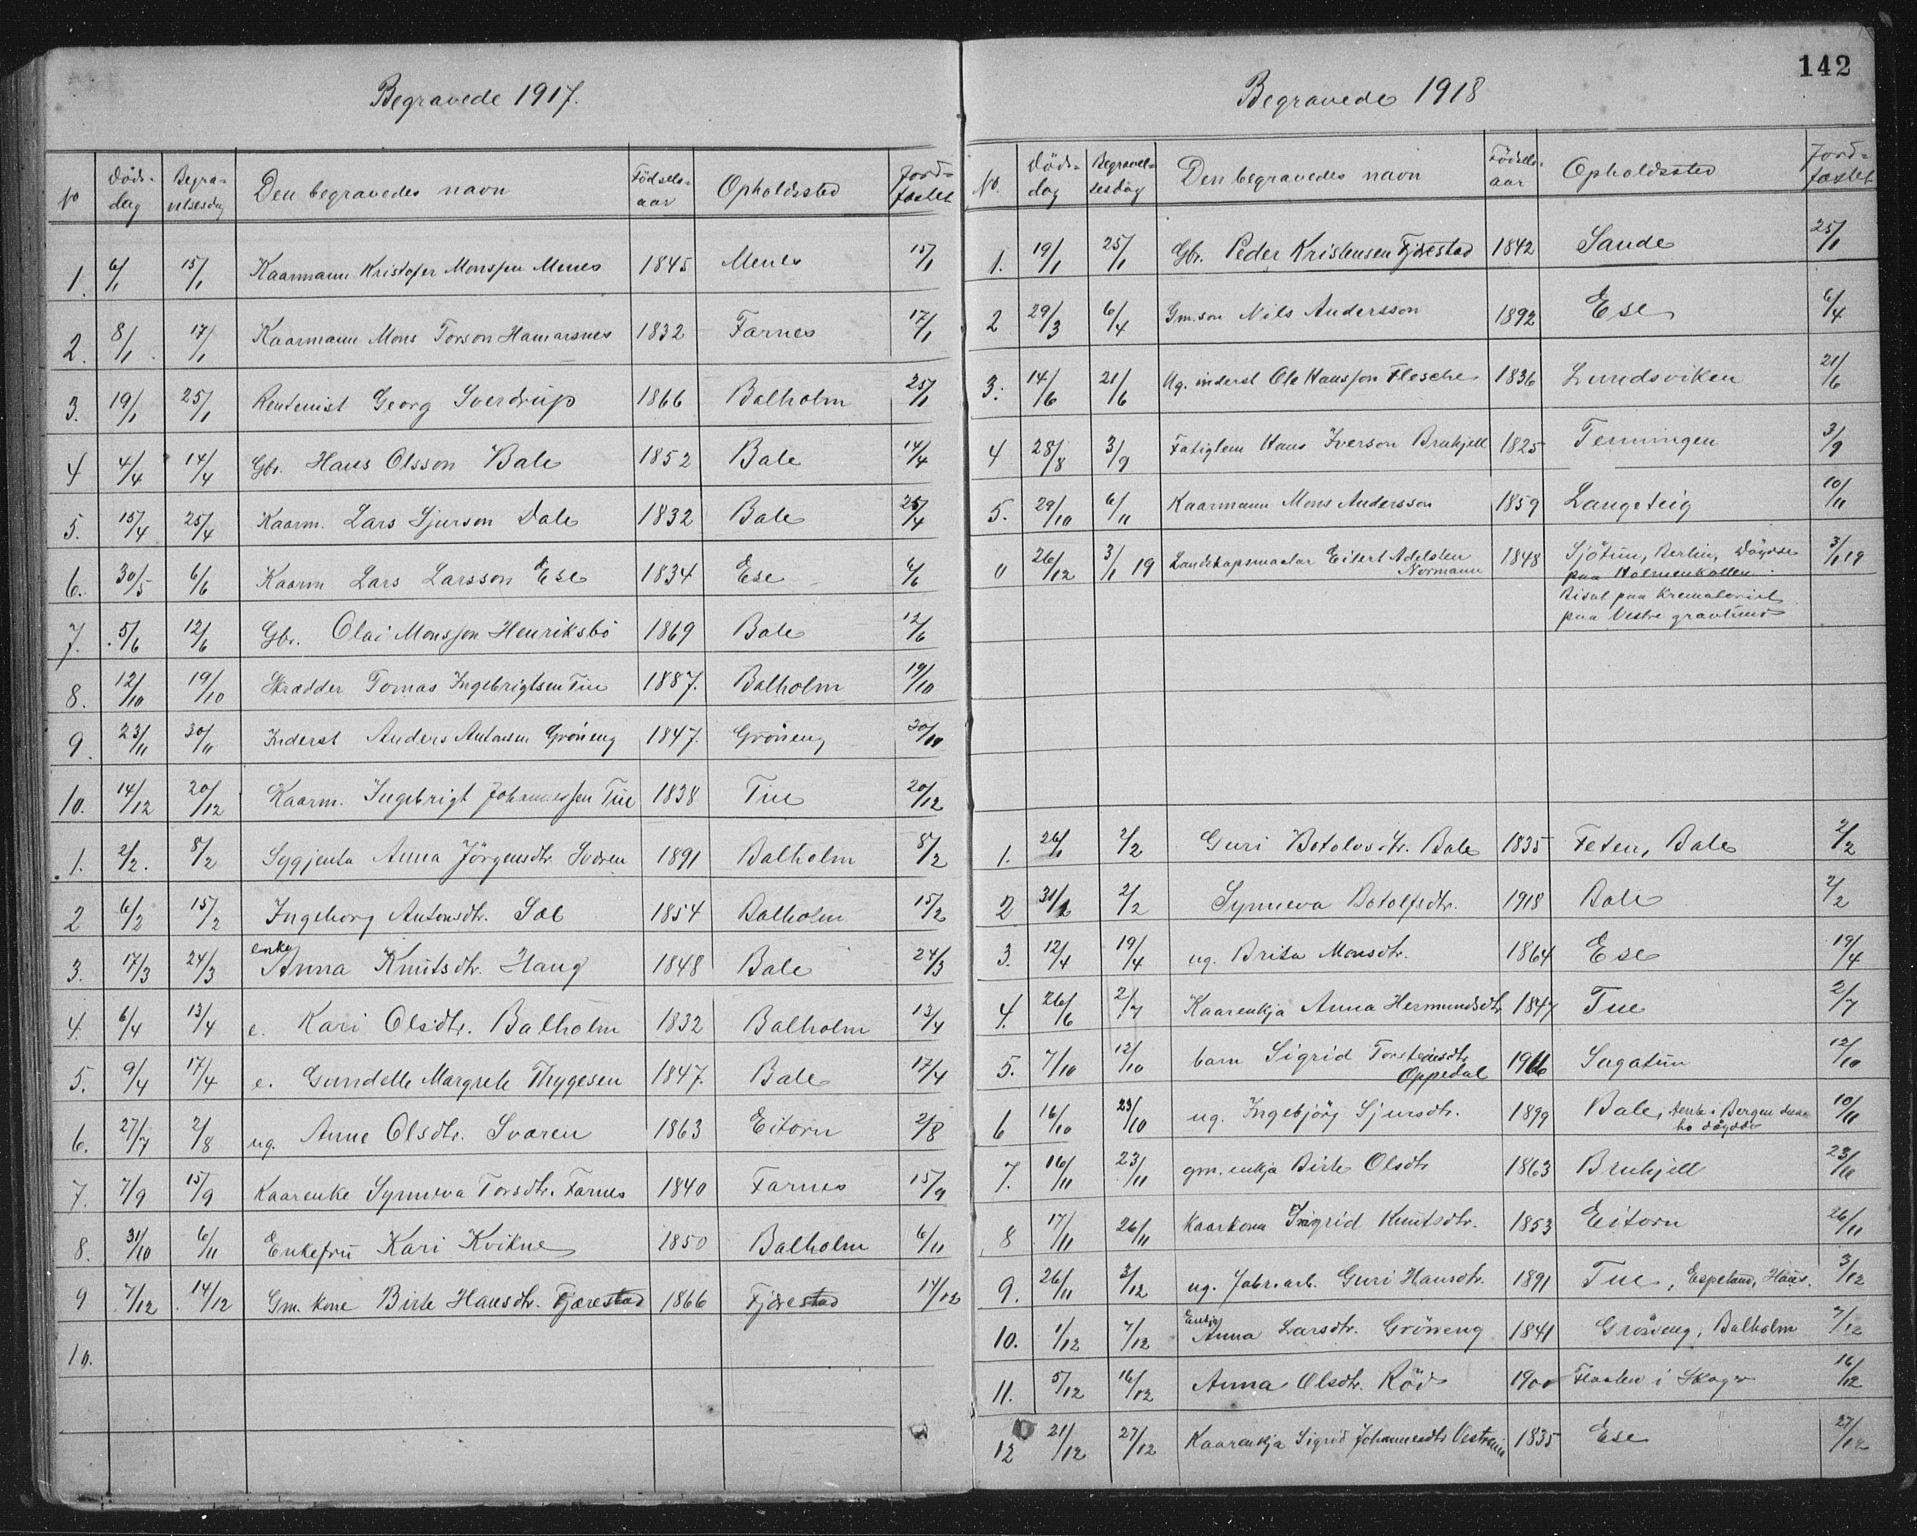 Begravede 1917.
No Døds-dag Begra-velsesdag Den begravedes navn Fødsels-aar Opholdssted Jord-fæstet
1. 6/1 15/1 Kaarmann Kristofer Monssen Menes 1845 Menes 15/1
2. 8/1 17/1 Kaarmann Mons Torson Hamarsnes 1832 Farnes 17/1
3. 19/1 25/1 Rentenist Georg Sverdrup 1866 Balholm 25/1
4 4/4 14/4 Gbr. Hans Olsson Bale 1852 Bale 14/4
5. 15/4 25/4 Kaarm. Lars Sjurson Dale 1832 Bale 25/4
6. 30/5 6/6 Kaarm Lars Larsson Ese 1834 Ese 6/6
7. 5/6 12/6 Gbr. Olai Monsson Henriksbø 1869 Bale 12/6
8. 12/10 19/10 Skrædder Tomas Ingebrigtsen Tue 1887. Balholm 19/10
9. 23/11 30/11 Inderst Anders Antonsen Grøneng 1847. Grøneng
10. 14/12 20/12 Kaarm. Ingebrigt Johannessen Tue 1838 Tue 20/12
1. 2/2. 8/2 Sygjenta Anna Jörgensdtr. Sværen 1891 Balholm 8/2
2 6/2 15/2 Ingeborg Antonsdtr. Sæl 1854 Balholm 15/2
3. 17/3 24/3 enke Anna Knutsdtr. Haug 1848 Bale 24/3
4. 6/4 13/4 e. Kari Olsdtr. Balholm 1832 Balholm 13/4
5. 9/4 17/4 e. Gundelle Margrete Thygesen 1847. Bale 17/4
6. 27/7 2/8 ug. Anne Olsdtr. Sværen 1863 Eitorn 2/8
7. 7/9 15/9 Kaarenke Synneva Torsdtr. Farnes 1840 Farnes 15/9
8. 31/10 6/11 Enkefru Kari Kvikne 1850 Balholm 6/11
9 7/12 14/12 Gm. kone Birte Hansdtr. Fjærestad 1866 Fjærestad 14/12
10.
142
Begravede 1918
No. Døds-dag Begravel-sesdag Den begravedes navn Fødsels-aar Opholdssted Jord-fæstet
1. 19/1 25/1 Gbr. Peder Kristensen Fjærestad 1842 Sande 25/1
2 29/3 6/4 Gm.son Nils Andersson 1892 Ese 6/4
3. 14/6 21/6 Ug. inderst Ole Hansson Flesche 1836 Lundsviken 21/6
4 28/8 3/9 Fatiglem Hans Iverson Bruhjell 1825 Tenningen 3/9
5. 29/10 6/11 Kaarmann Mons Andersson 1859 Langeteig 10/11
0 26/12 3/1 19 Landskapsmaalar Eilert Adelsten Normann 1848 Sjötun, Berlin, Döydde 3/1 19
paa Holmenkollen.
Bisat paa Krematoriet
paa Vestre gravlund
1. 26/1 2/2 Guri Botolvsdtr. Bale 1835 Feten, Bale 2/2
2 31/1 2/2 Synneva Botolfsdtr. 1918 Bale 2/2
3. 12/4 19/4 ug. Brita Monsdtr. 1864 Ese 19/4
4. 26/6 2/7 Kaarenkja Anna Hermundsdtr 1847 Tue 2/7
5. 7/10 12/10 barn Sigrid Torsteinsdtr Oppedal 1916 Sagatun 12/10
6 16/10 23/10 ug. Ingebjörg Sjursdtr. 1899 Bale, Bergen 10/11
7. 16/11 23/11 gm. enkja Birte Olsdtr 1863 Bruhjell 23/11
8 17/11 26/11 Kaarkona Ingrid Knutsdtr. 1853 Eitorn 26/11
9. 26/11 3/12 ug. fabr.arb. Guri Hansdtr. 1891 Tue, Espeland, Haus. 3/12
10. 1/12 7/12 Enkja Anna Larsdtr. Gröneng 1841 Gröneng, Balholm 7/12
11. 5/12 16/12 Anna Olsdtr. Röd 1900 Flaaten i Skoger 16/12
12 21/12 27/12 Kaarenkja Sigrid Johannesdtr Vestreim 1835 Ese 27/12